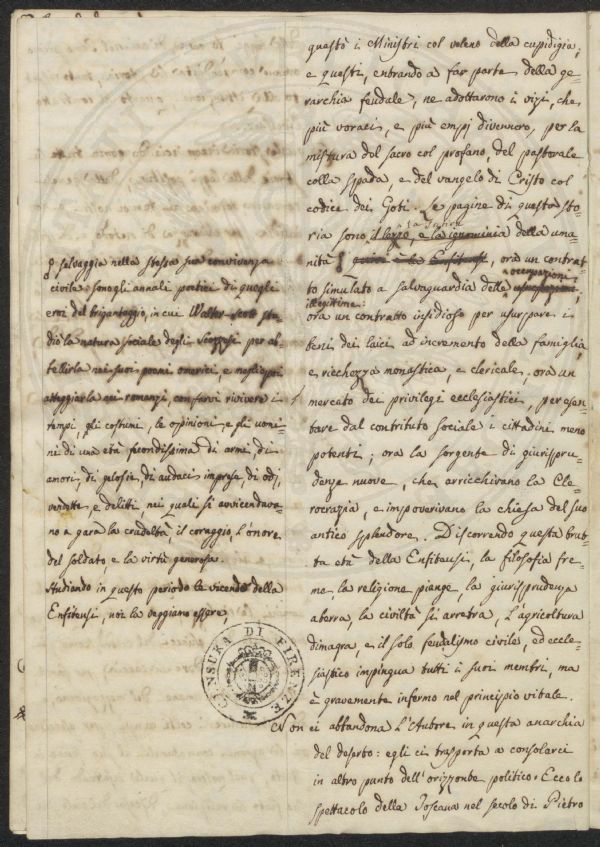 questò i Ministri col veleno della cupidigia;
e questi, entrando a far parte della ge=
rarchia feudale, ne adottarono i vizi, che
più voraci, e più empj divennero, per la
mistura del sacro col profano, del pastorale
colla spada, e del vangelo di Cristo col
codice dei Goti. Le pagine di questa sto=
ria sono il lezzo, e la ignominia della uma=
nità, ora un contrat=
to simulato a salvaguardia delle occupazioni
illegittime:
ora un contratto insidioso per usurpare i
beni dei laici ad incremento della famiglia,
e ricchezza monastica, e clericale; ora un
mercato dei privilegi ecclesiastici, per esen=
tare dal contributo sociale i cittadini meno
potenti; ora la sorgente di giurispru=
denze nuove, che arricchivano la Cle=
rocrazia, e impoverivano la chiesa del suo
antico splendore. Discorrendo questa brut=
ta età della Enfiteusi, la filosofia fre=
me, la religione piange, la giurisprudenza
aberra, la civiltà si arretra, l'agricoltura
dimagra, e il solo feudalismo civile, ed eccle=
siastico impingua tutti i suoi membri, ma
è gravemente infermo nel principio vitale.
Non ci abbandona l'Autore in questa anarchia
del deserto: egli ci trasporta a consolarci
in altro punto dell'orizzonte politico. Ecco lo
spettacolo della Toscana nel secolo di Pietro
e, selvaggia nella stessa sua convivenza
civile: sono gli annali poetici di quegli
eroi del brigantaggio, in cui Walter-Scott stu=
diò la natura sociale degli Scozzesi per ab=
bellirla nei suoi poemi omerici, e meglio poi
atteggiarla nei romanzi, con farvi rivivere i
tempi, gli costumi, le opinioni e gli uomi=
ni di una età fecondissima di armi, di
amori, di gelosie, di audaci imprese, di odj,
vendette e delitti, nei quali si avvicendava=
no a gara la crudeltà, il coraggio, l'onore
del soldato, e la virtù generosa.
Studiando in questo periodo le vicende della
Enfiteusi, noi la veggiamo essere,
CENSURA DI FIRENZE